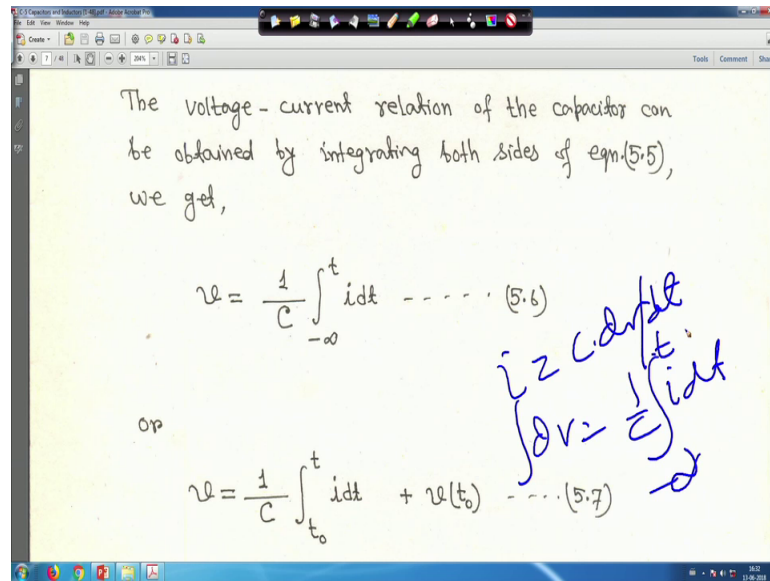 C-5 Capacitors and Inductors (1-48).pdf - Adobe Acrobat Pro
File Edit View Window Help
Create
7 / 48 204% Tools Comment
The voltage-current relation of the capacitor can
be obtained by integrating both sides of eqn.(5.5),
we get,
v = 1/C ∫_{-∞}^{t} idt ----- (5.6)
i = C.dv/dt
∫dv = 1/C ∫_{-∞}^{t} idt
or
v = 1/C ∫_{t₀}^{t} idt + v(t₀) ----(5.7)
16:32
13-06-2018